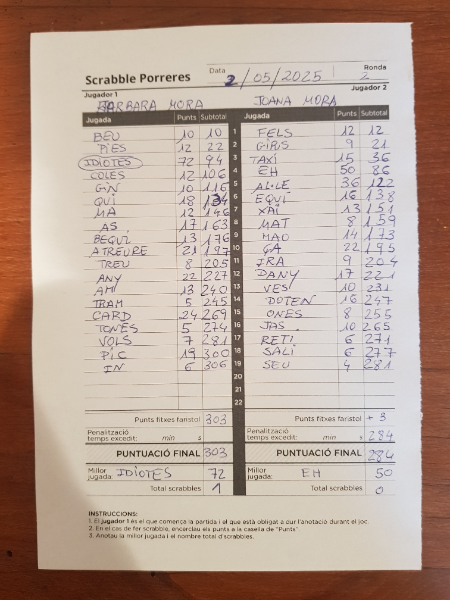 Scrabble Porreres Data 2/05/2025 Ronda 2
Jugador 1 Jugador 2
BARBARA MORA JOANA MORA
Jugada Punts Subtotal Jugada Punts Subtotal
BEU 10 10 1 FELS 12 12
PIES 12 22 2 GIRUS 9 21
IDIOTES 72 94 3 TAXI 15 36
COLES 12 106 4 EH 50 86
GIN 10 116 5 AL·LE 36 122
QUI 18 134 6 EQUI 16 138
MA 12 146 7 XAI 13 151
AS 17 163 8 MAT 8 159
BEGUI 13 176 9 MAO 14 173
ATREURE 21 197 10 ÇA 22 195
TREU 8 205 11 IRA 9 204
ANY 22 227 12 DANY 17 221
AMI 13 240 13 VES 10 231
TRAM 5 245 14 DOTEN 16 247
CARD 24 269 15 ONES 8 255
TONES 5 274 16 JAS 10 265
VOLS 7 281 17 RETI 6 271
PIC 19 300 18 SALI 6 277
IN 6 306 19 SEU 4 281
20
21
22
Punts fitxes faristol 303 Punts fitxes faristol + 3
Penalització temps excedit: min s Penalització temps excedit: min s 284
PUNTUACIÓ FINAL 303 PUNTUACIÓ FINAL 284
Millor jugada: IDIOTES 72 Millor jugada: EH 50
Total scrabbles 1 Total scrabbles 0
INSTRUCCIONS:
1. El jugador 1 és el que comença la partida i el que està obligat a dur l'anotació durant el joc.
2. En el cas de fer scrabble, encerclau els punts a la casella de "Punts".
3. Anotau la millor jugada i el nombre total d'scrabbles.